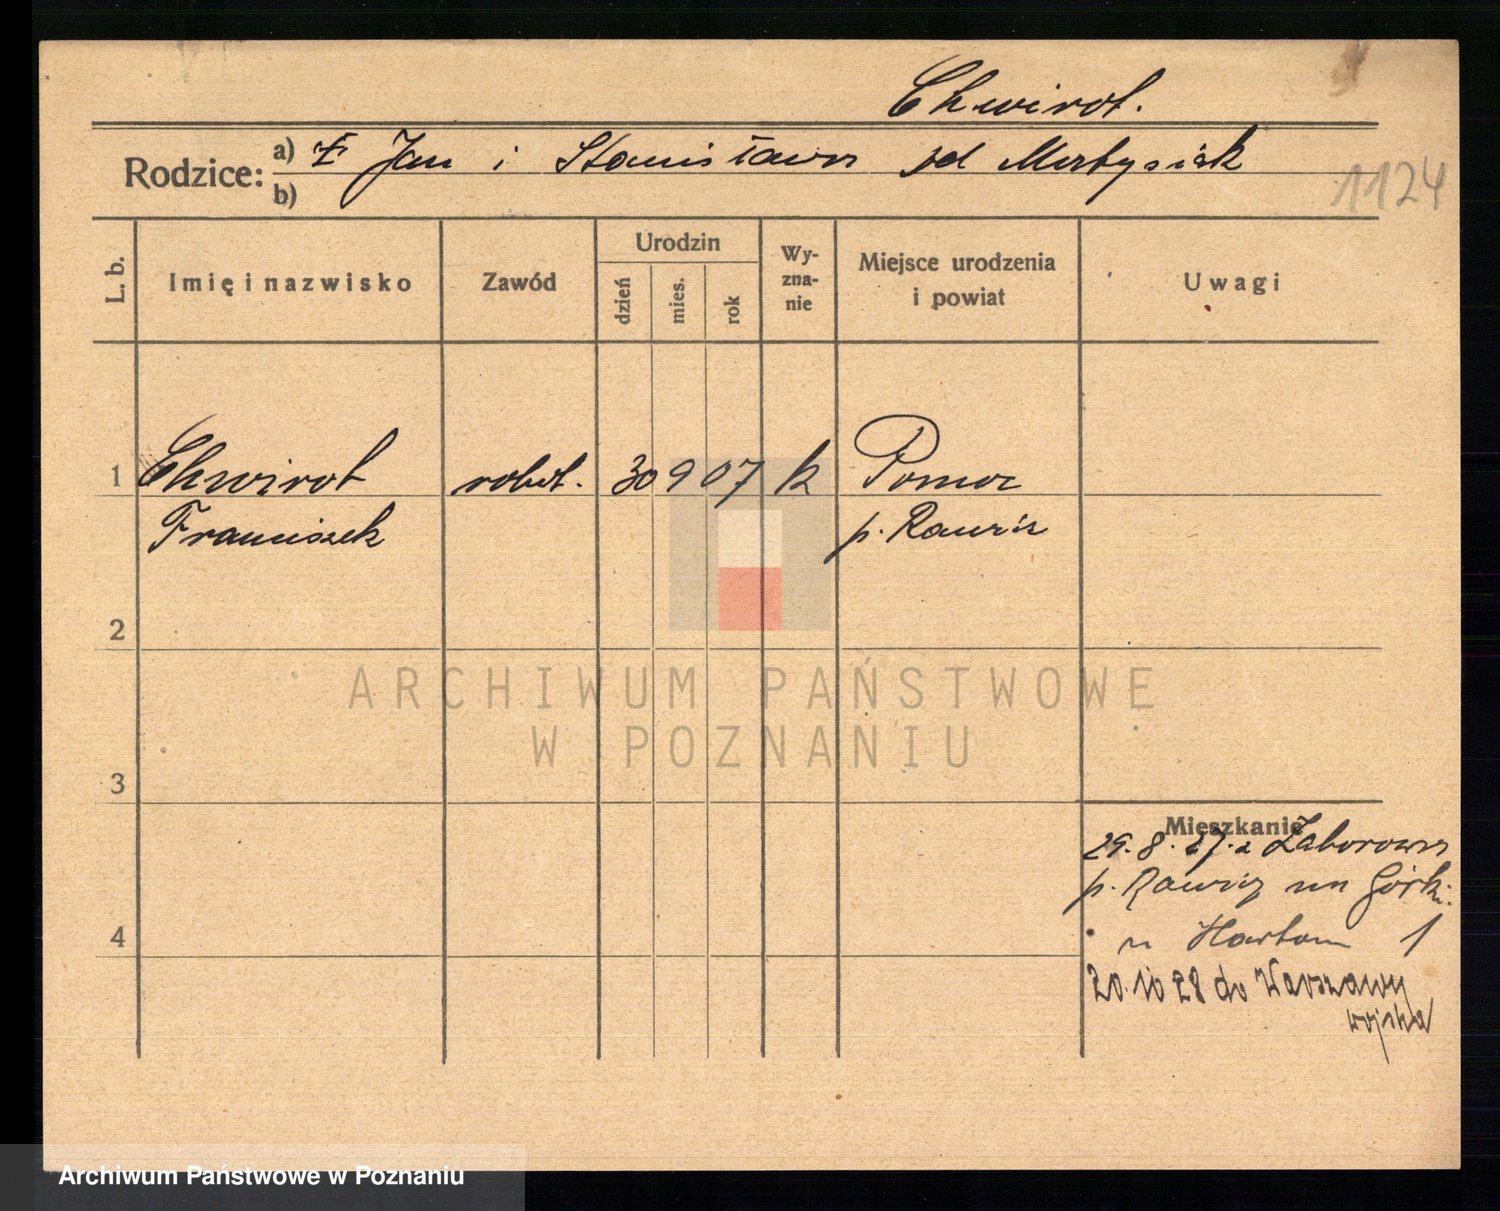 Chwirot.
Rodzice: a) Jan i Stanisława zd Matysiak
b)
1124
L. b.
Imię i nazwisko
Zawód
Urodzin
dzień
mies.
rok
Wy-
zna-
nie
Miejsce urodzenia
i powiat
Uwagi
1 Chwirot robot. 30 9 07 k
Franciszek p. Rawicz
2
ARCHIWUM PAŃSTWOWE
W POZNANIU
3
Mieszkanie
29. 8. 27. z Zaborowa
p. Rawicz na Górki
1
4
20. 10 28 do Warszawy
wojska
Archiwum Państwowe w Poznaniu